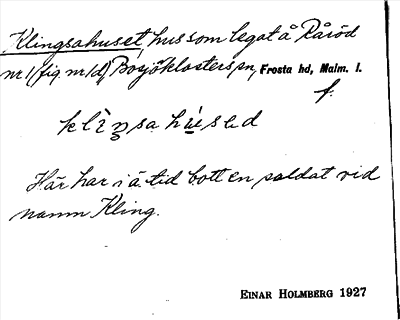 Klingsahuset, hus som legat å Råröd
nr 1 (fig. nr 1d) Bosjöklosters sn, Frosta hd, Malm. l.
f.
klìŋsahúsəd
Här har i ä. tid bott en soldat vid
namn Kling.
EINAR HOLMBERG 1927